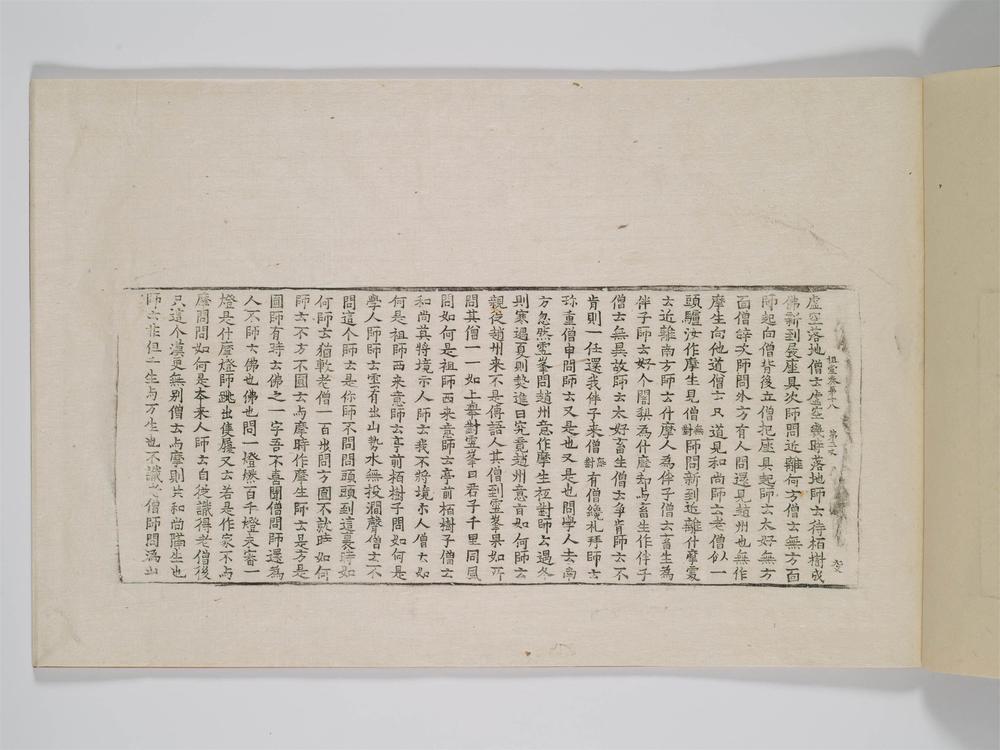 虛空落地僧云虛空幾時落地師云待栢樹成
祖堂卷第十八 第二丈
佛新到展座具次師問近離何方僧云無方面
師起向僧背後立僧把座具起師云太好無方
面僧辝次師問外方有人問還見趙州也無作
摩生向他道僧云只道見和尚師云老僧似一
頭驢汝作摩生見僧無對師問新到近離什摩處
云近離南方師云什摩人為伴子僧云畜生為
伴子師云好个闍梨為什摩却与畜生作伴子
僧云無異故師云太好畜生僧云爭肯師云不
肯則一任還我伴子來僧無對有僧纔礼拜師云
珎重僧申問師云又是也又是也問學人去南
方忽然雪峯問趙州意作摩生秖對師云遇冬
則寒遇夏則熱進曰究竟趙州意旨如何師云
親從趙州來不是傳語人其僧到雪峯果如所
問其僧一一如上舉對雪峯曰君子千里同風
問如何是祖師西來意師云亭前栢樹子僧云
和尚莫將境示人師云我不將境示人僧云如
何是祖師西來意師云亭前栢樹子問如何是
學人師師云雲有出山勢水無投澗聲僧云不
問這个師云是你師不問問頭頭到這裏時如
何師云猶軟老僧一百步問方圓不就時如何
師云不方不圓云与摩時作摩生師云是方是
圓師有時云佛之一字吾不喜聞僧問師還為
人不師云佛也佛也問一燈燃百千燈未審一
燈是什摩燈師跳出隻履又云若是作家不与
摩問問如何是本來人師云自從識得老僧後
只這个漢更無別僧云与摩則共和尚隔生也
師云非但一生与万生也不識老僧師問溈山